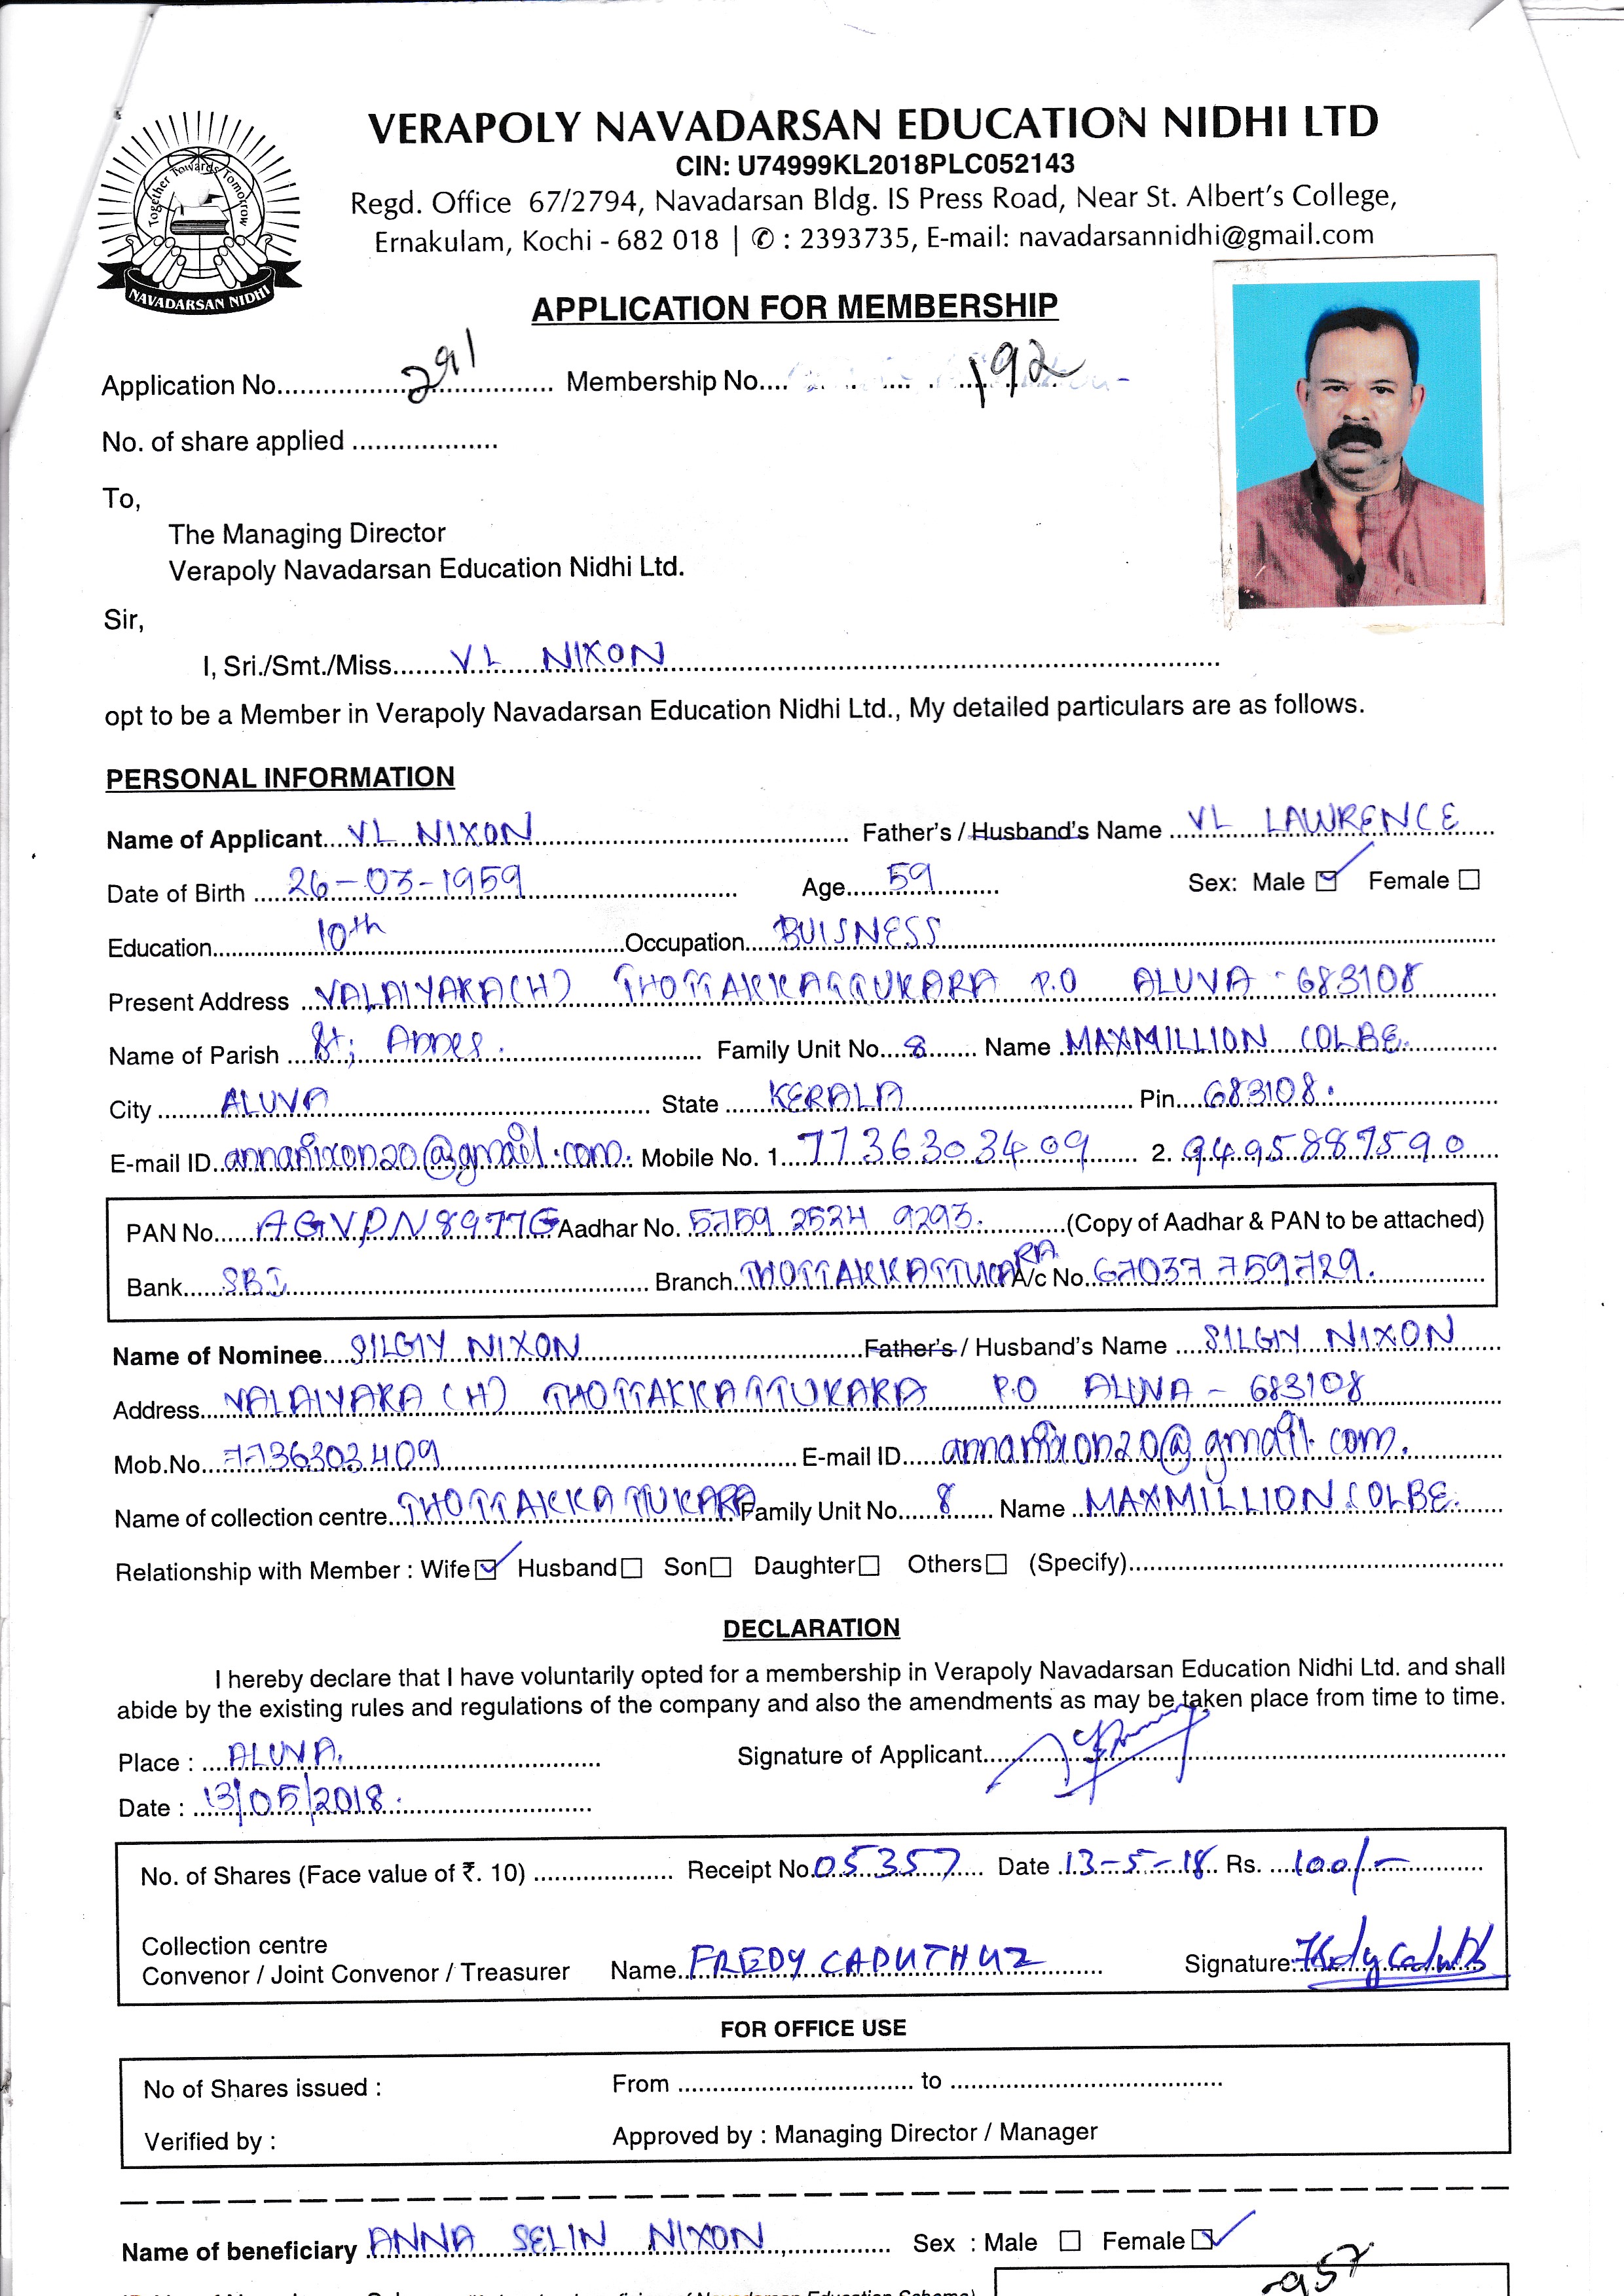 VERAPOLY NAVADARSAN EDUCATION NIDHI LTD
CIN: U74999KL2018PLC052143
Regd. Office 67/2794, Navadarsan Bldg. IS Press Road, Near St. Albert's College,
Ernakulam, Kochi - 682 018 | ✆ : 2393735, E-mail: navadarsannidhi@gmail.com
Together Towards Tomorrow
NAVADARSAN NIDHI
APPLICATION FOR MEMBERSHIP
Application No. 291 Membership No. 192
No. of share applied
To,
The Managing Director
Verapoly Navadarsan Education Nidhi Ltd.
Sir,
I, Sri./Smt./Miss. V.L NIXON
opt to be a Member in Verapoly Navadarsan Education Nidhi Ltd., My detailed particulars are as follows.
PERSONAL INFORMATION
Name of Applicant VL NIXON Father's / Husband's Name VL LAWRENCE
Date of Birth 26-03-1959 Age 59 Sex: Male ☑ Female ☐
Education 10th Occupation BUISNESS
Present Address VALAIYARA (H) THOTTAKKATTUKARA P.O ALUVA - 683108
Name of Parish St; Annes. Family Unit No. 8 Name MAXMILLION COLBE.
City ALUVA State KERALA Pin 683108.
E-mail ID annanixon20@gmail.com. Mobile No. 1. 7736303409 2. 9495887590
PAN No. AGVPN8977G Aadhar No. 5759 2524 9293. (Copy of Aadhar & PAN to be attached)
Bank SBI Branch THOTTAKKATTUKARA A/c No. 67037759729.
Name of Nominee SILGIY NIXON Father's / Husband's Name SILGIY NIXON
Address VALAIYARA (H) THOTTAKKATTUKARA P.O ALUVA - 683108
Mob.No. 7736303409 E-mail ID annanixon20@gmail.com.
Name of collection centre THOTTAKKATTUKARA Family Unit No. 8 Name MAXMILLION COLBE.
Relationship with Member : Wife ☑ Husband ☐ Son ☐ Daughter ☐ Others ☐ (Specify)
DECLARATION
I hereby declare that I have voluntarily opted for a membership in Verapoly Navadarsan Education Nidhi Ltd. and shall
abide by the existing rules and regulations of the company and also the amendments as may be taken place from time to time.
Place : ALUVA. Signature of Applicant
Date : 13/05/2018.
No. of Shares (Face value of ₹. 10) Receipt No. 05357 Date 13-5-18 Rs. 100/-
Collection centre
Convenor / Joint Convenor / Treasurer Name FREDY CADUTHUZ Signature:
FOR OFFICE USE
No of Shares issued : From to
Verified by : Approved by : Managing Director / Manager
Name of beneficiary ANNA SELIN NIXON Sex : Male ☐ Female ☑
957